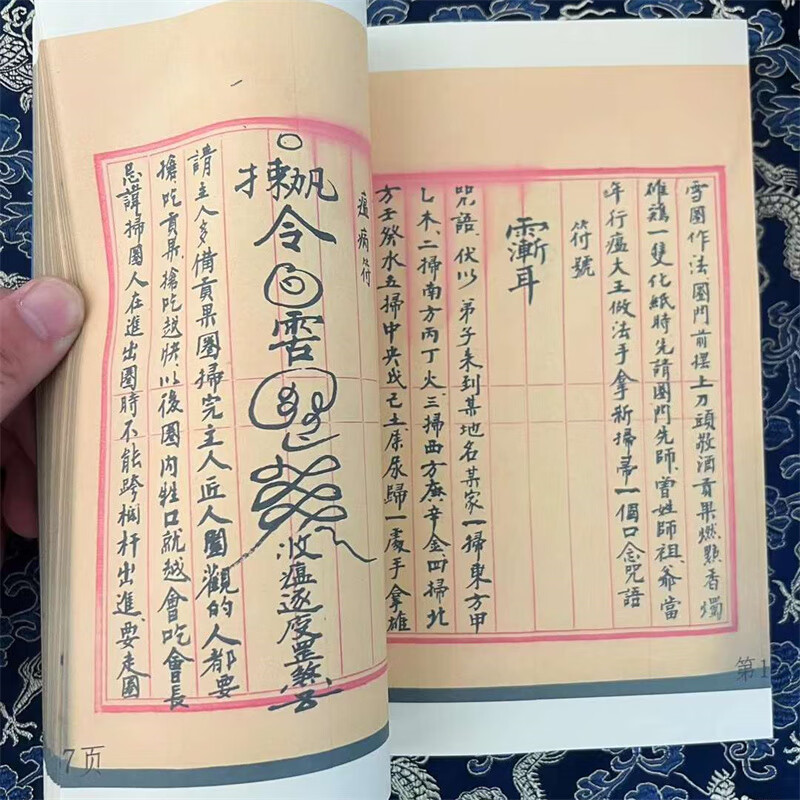 雪圈作法圈門前摆上刀頭敬酒貢果燃點香燭
雄鷄一雙化紙時先請圈門先師、曾姓師祖、爺當
年行瘟大王做法手拿新掃帚一個口念咒語
符號
咒語、伏以弟子来到某地名某家一掃東方甲
乚木、二掃南方丙丁火、三掃西方庚辛金四掃北
方壬癸水五掃中央戊己土、屎尿歸一處手拿雄
第1
瘟病符
令
收瘟逐疫罡煞
請主人多備貢果圈掃完主人近人圍觀的人都要
搶吃貢果、搶吃越快以後圈内牲口就越會吃會長
忌諱掃圈人在進出圈時不能跨栏杆出進、要走圈
7页